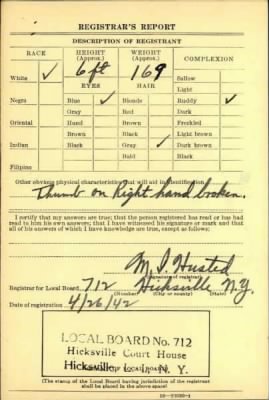 REGISTRAR'S REPORT
DESCRIPTION OF REGISTRANT
RACE HEIGHT (Approx.) WEIGHT (Approx.) COMPLEXION
White ✓ 6 ft 169 Sallow
EYES HAIR Light
Negro Blue ✓ Blonde Ruddy ✓
Gray Red Dark
Oriental Hazel Brown Freckled
Brown Black Light brown
Indian Black Gray ✓ Dark brown
Bald Black
Filipino
Other obvious physical characteristics that will aid in identification
Thumb on Right hand broken.
I certify that my answers are true; that the person registered has read or has had
read to him his own answers; that I have witnessed his signature or mark and that
all of his answers of which I have knowledge are true, except as follows:
M. J. Husted
(Signature of registrar)
Registrar for Local Board 712 Hicksville N.Y.
(Number) (City or county) (State)
Date of registration 4/26/42
LOCAL BOARD No. 712
Hicksville Court House
Hicksville, L. I., N. Y.
(The stamp of the Local Board having jurisdiction of the registrant
shall be placed in the above space)